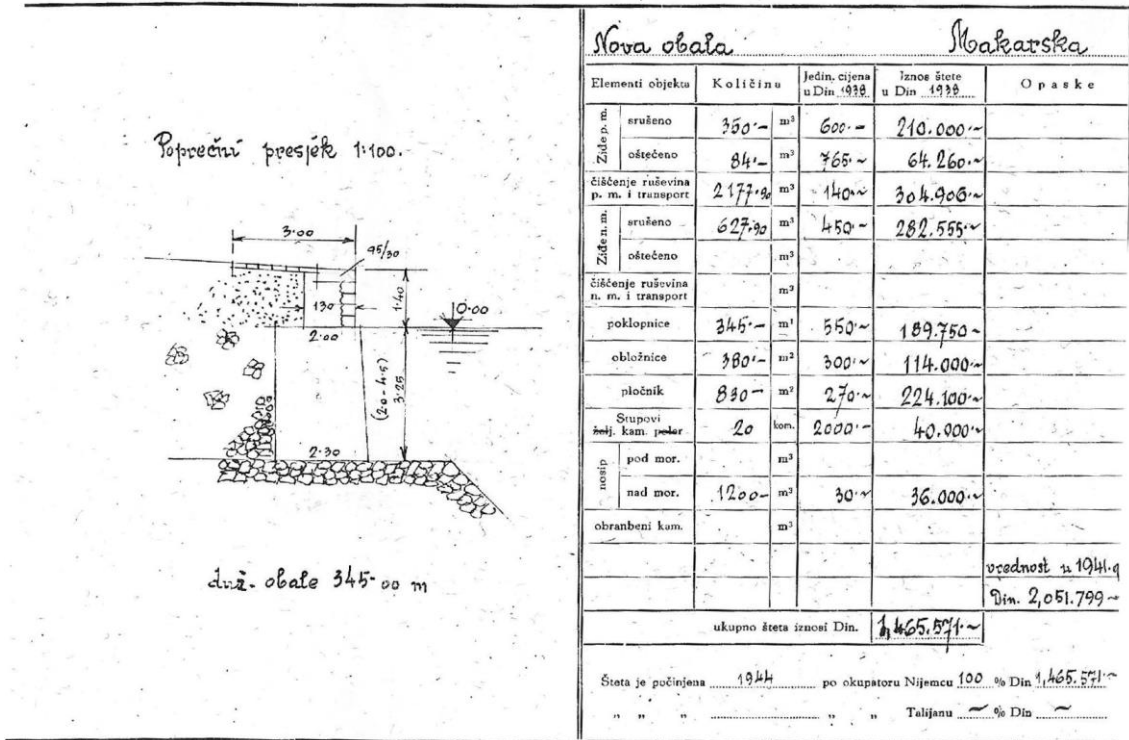 Poprečni presjek 1:100.
3.00
95/30
130
1.40
0.00
2.00
(2.0-4.5)
3.25
2.30
duž. obale 345.00 m
Nova obala Makarska
Elementi objekta Količina Jedin. cijena u Din 1938 Iznos štete u Din 1938 Opaske
Ziđe p. m. srušeno 350·- m³ 600·- 210.000·~
oštećeno 84·- m³ 765·~ 64.260·~
čišćenje ruševina
p. m. i transport 2177.90 m³ 140·~ 304.906·~
Ziđe n. m. srušeno 627.90 m³ 450·~ 282.555·~
oštećeno m³
čišćenje ruševina
n. m. i transport m³
poklopnice 345·- m¹ 550·~ 189.750·~
obložnice 380·- m² 300·~ 114.000·~
pločnik 830- m² 270·~ 224.100·~
Stupovi
želj. kam. poler 20 kom. 2000·- 40.000·~
nosip pod mor. m³
nad mor. 1200- m³ 30·~ 36.000·~
obranbeni kam. m³
vrednost u 1941.g
Din. 2,051.799~
ukupno šteta iznosi Din. 1,465.571·~
Šteta je počinjena 1944 po okupatoru Nijemcu 100 % Din 1,465.571·~
" " " " " Talijanu ~ % Din ~